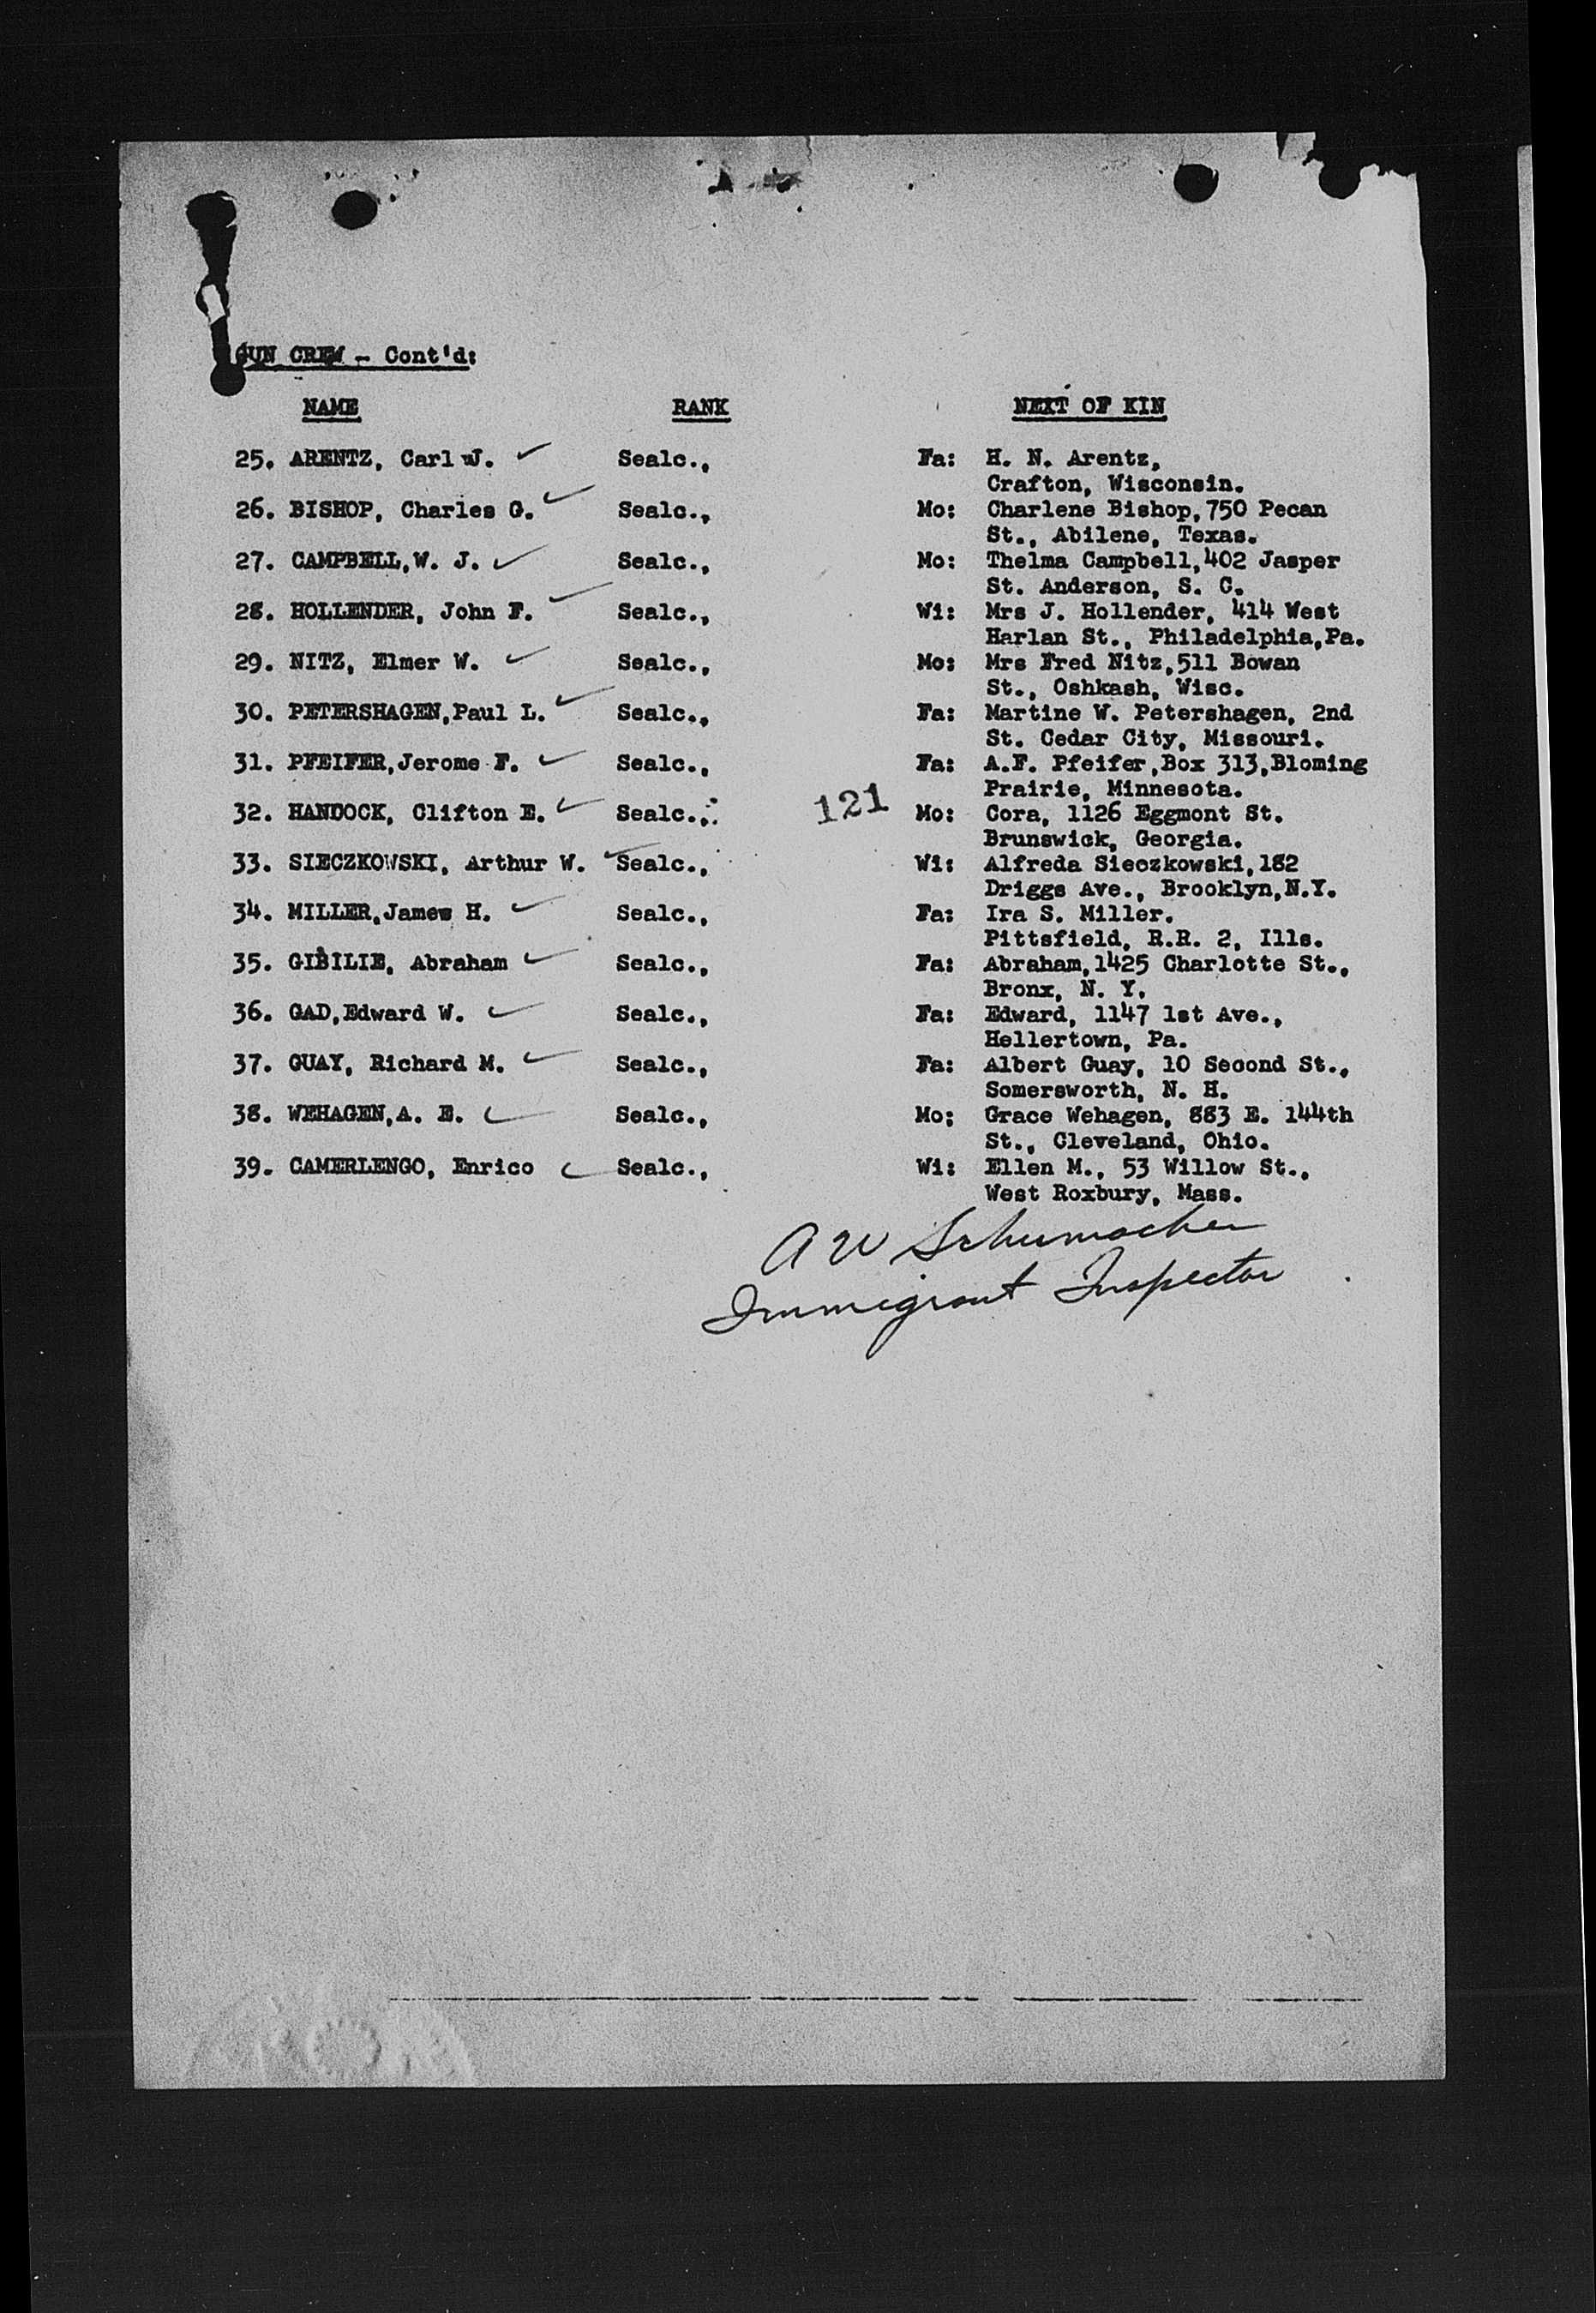 GUN CREW - Cont'd:
NAME RANK NEXT OF KIN
25. ARENTZ, Carl W. Sealc., Fa: H. N. Arentz,
Crafton, Wisconsin.
26. BISHOP, Charles G. Sealc., Mo: Charlene Bishop,750 Pecan
St., Abilene, Texas.
27. CAMPBELL,W. J. Sealc., Mo: Thelma Campbell,402 Jasper
St. Anderson, S. C.
28. HOLLENDER, John F. Sealc., Wi: Mrs J. Hollender, 414 West
Harlan St., Philadelphia,Pa.
29. NITZ, Elmer W. Sealc., Mo: Mrs Fred Nitz,511 Bowan
St., Oshkash, Wisc.
30. PETERSHAGEN,Paul L. Sealc., Fa: Martine W. Petershagen, 2nd
St. Cedar City, Missouri.
31. PFEIFER,Jerome F. Sealc., Fa: A.F. Pfeifer,Box 313,Bloming
Prairie, Minnesota.
32. HANDOCK, Clifton E. Sealc., 121 Mo: Cora, 1126 Eggmont St.
Brunswick, Georgia.
33. SIECZKOWSKI, Arthur W. Sealc., Wi: Alfreda Sieczkowski,182
Driggs Ave., Brooklyn,N.Y.
34. MILLER,James H. Sealc., Fa: Ira S. Miller.
Pittsfield, R.R. 2, Ills.
35. GIBILIE, Abraham Sealc., Fa: Abraham,1425 Charlotte St.,
Bronx, N. Y.
36. GAD,Edward W. Sealc., Fa: Edward, 1147 1st Ave.,
Hellertown, Pa.
37. GUAY, Richard M. Sealc., Fa: Albert Guay, 10 Second St.,
Somersworth, N. H.
38. WEHAGEN,A. E. Sealc., Mo; Grace Wehagen, 883 E. 144th
St., Cleveland, Ohio.
39. CAMERLENGO, Enrico Sealc., Wi: Ellen M., 53 Willow St.,
West Roxbury, Mass.
A W Schumacher
Immigrant Inspector